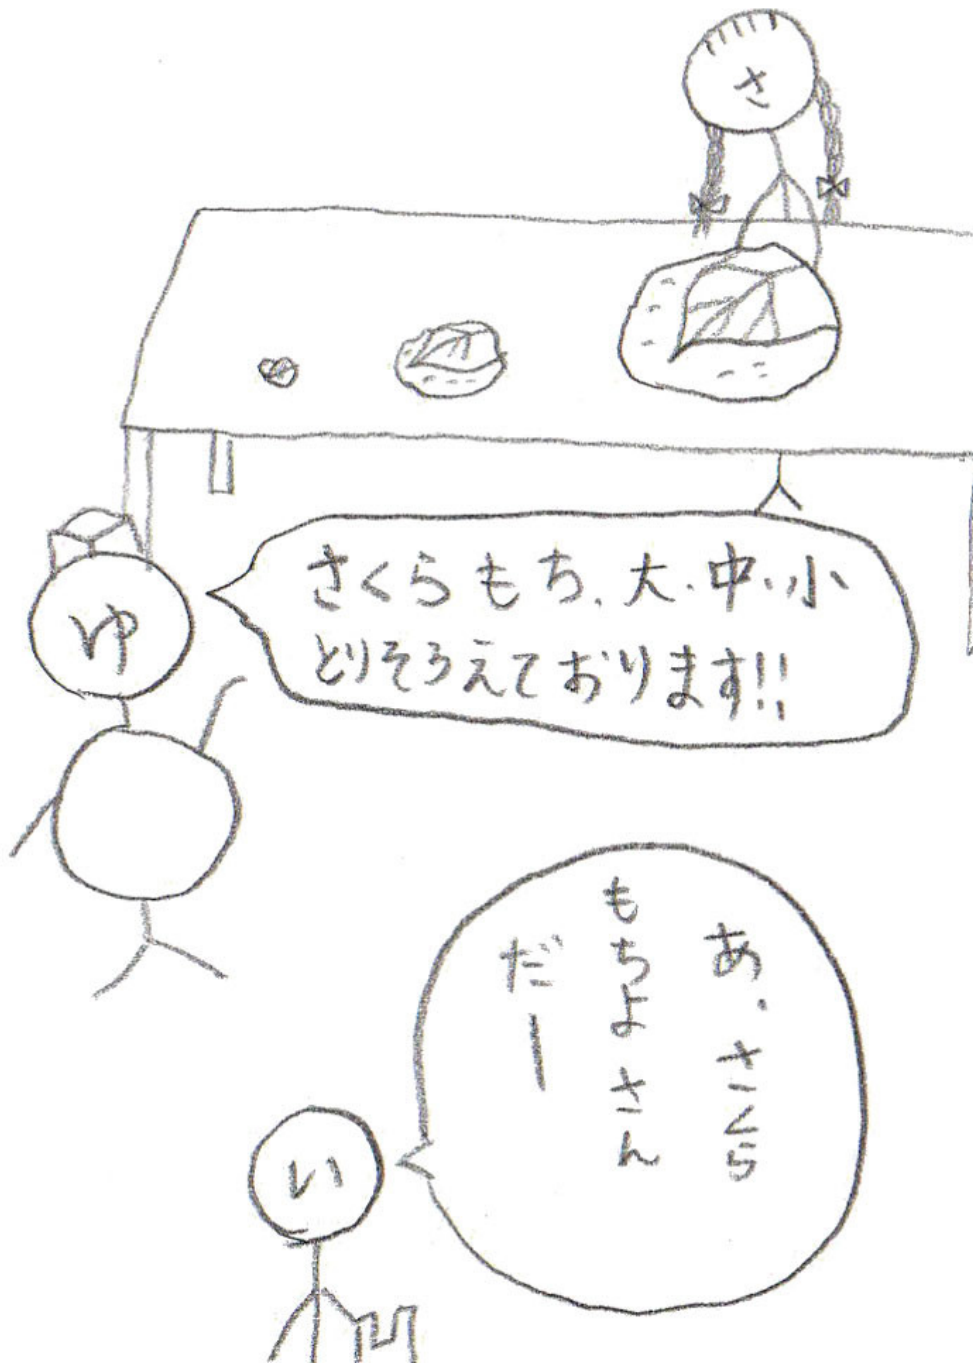 さ
さくらもち、大・中・小
とりそろえております!!
ゆ
あ、さくら
もちよさん
だー
い